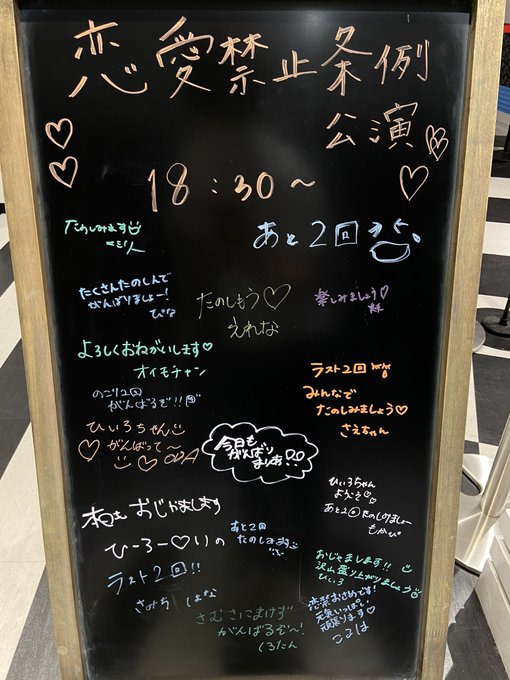 恋愛禁止条例
公演
18:30～
たのしみます
あと2回
たくさんたのしんで
がんばりましょー!
ぴな
たのしもう♡
えれな
楽しみましょう♡
よろしくおねがいします♡
オイモチャン
のこり2回
がんばるぞ!!
ラスト2回
みんなで
たのしみましょう♡
さえちゃん
ひいろちゃん
♡がんばって〜
♡
今日も
がんばり
ましょ
ひぃろちゃん
ようこそ
あと2回たのしみましょー
もかぴ
おじゃまします
ひーろー♡りの
あと2回
たのしみます
ラスト2回!!
さみち はな
おじゃまします!!
沢山盛り上がりましょう
ひぃろ
恋禁おさめです!
元気いっぱい
頑張ります♡
こはる
さむさにまけず
がんばるぞ〜!
くろたん